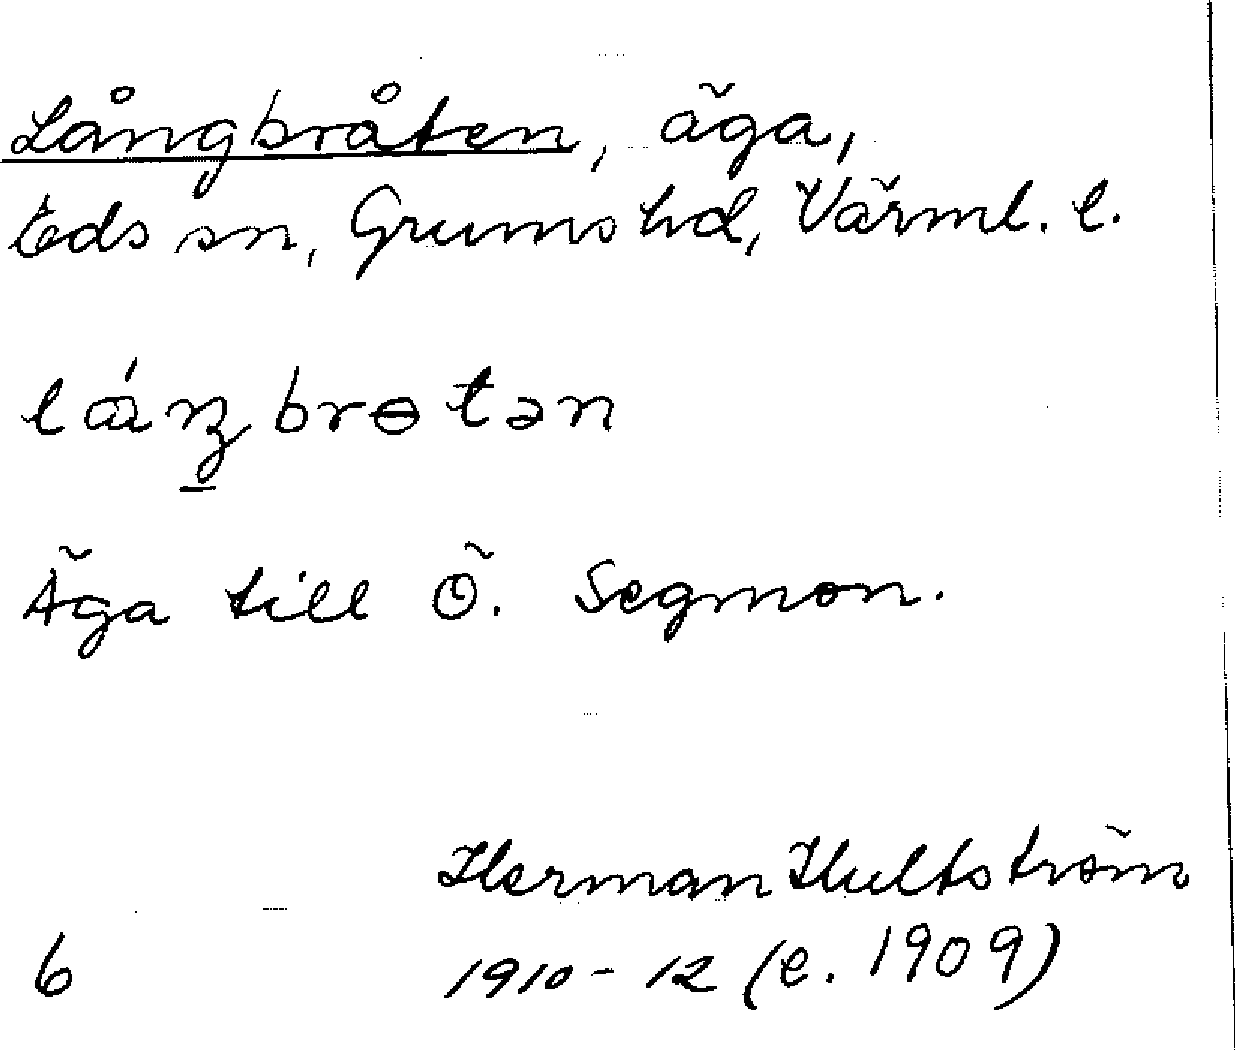 Långbråten, äga,
Eds sn, Grums hd, Värml. l.
láŋbrɵtən
Äga till Ö. Segmon.
Herman Hultström
6 1910-12 (e. 1909)